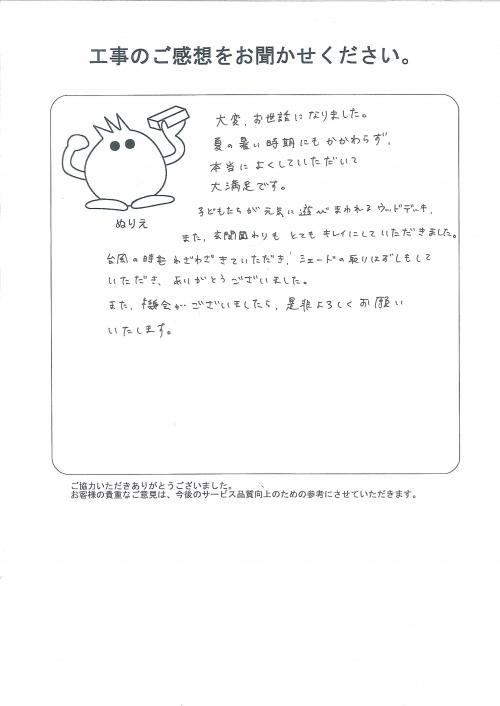 工事のご感想をお聞かせください。
大変、お世話になりました。
夏の暑い時期にもかかわらず、
本当によくしていただいて
大満足です。
子どもたちが元気に遊べまわれるウッドデッキ、
また、玄関回わりもとてもキレイにしていただきました。
台風の時もわざわざきていただき、シェードの取りはずしもして
いただき、ありがとうございました。
また、機会がございましたら、是非よろしくお願い
いたします。
ぬりえ
ご協力いただきありがとうございました。
お客様の貴重なご意見は、今後のサービス品質向上のための参考にさせていただきます。